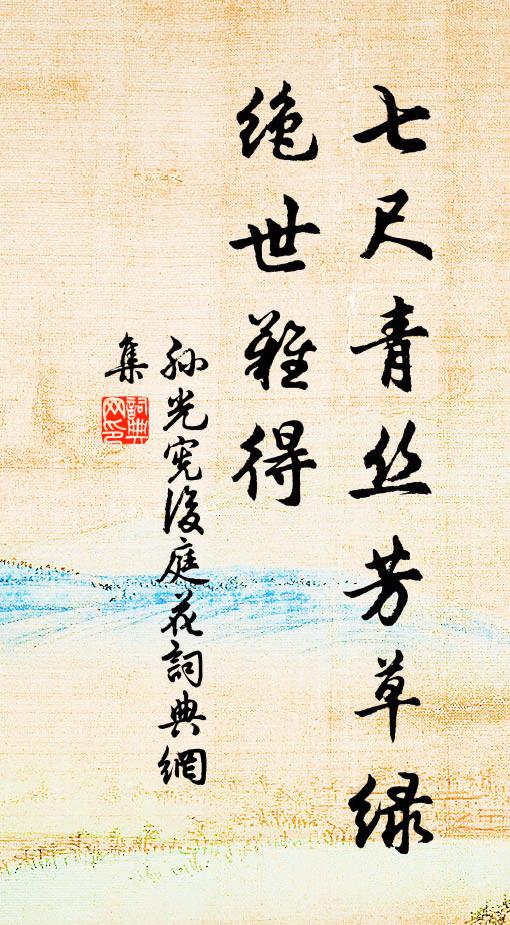 七尺青丝芳草绿
绝世难得
孙光宪後庭花詞典網
集
詞典
网印